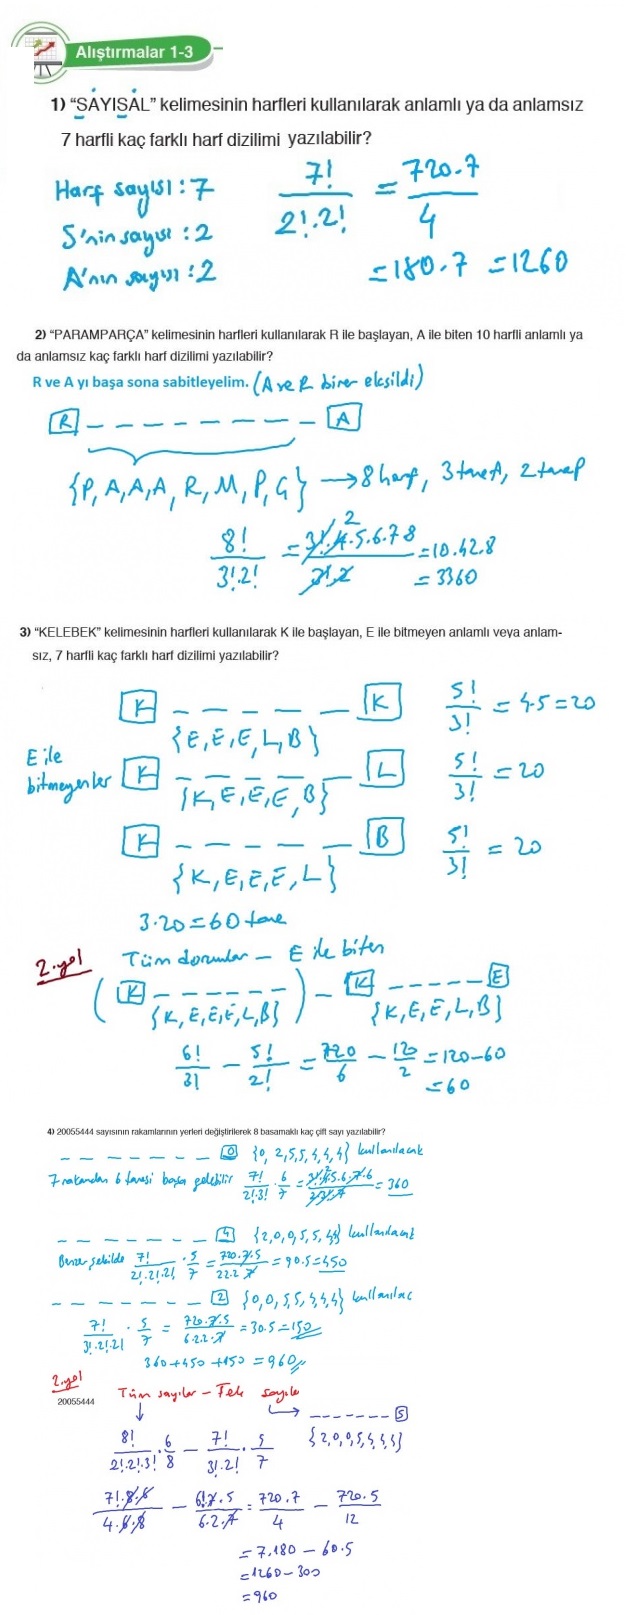 Alıştırmalar 1-3
1) “SAYISAL” kelimesinin harfleri kullanılarak anlamlı ya da anlamsız
7 harfli kaç farklı harf dizilimi yazılabilir?
Harf sayısı : 7
S'nin sayısı : 2
A'nın sayısı : 2
7! / 2!.2! = 720.7 / 4
= 180.7 = 1260
2) “PARAMPARÇA” kelimesinin harfleri kullanılarak R ile başlayan, A ile biten 10 harfli anlamlı ya
da anlamsız kaç farklı harf dizilimi yazılabilir?
R ve A yı başa sona sabitleyelim. (A ve R birer eksildi)
R _ _ _ _ _ _ _ _ A
{P, A, A, A, R, M, P, Ç} → 8 harf, 3 tane A, 2 tane P
8! / 3!.2! = 3!.4.5.6.7.8 / 3!.2 = 10.42.8
2
= 3360
3) “KELEBEK” kelimesinin harfleri kullanılarak K ile başlayan, E ile bitmeyen anlamlı veya anlam-
sız, 7 harfli kaç farklı harf dizilimi yazılabilir?
K _ _ _ _ _ K 5! / 3! = 4.5 = 20
{E, E, E, L, B}
E ile
bitmeyenler
K _ _ _ _ _ L 5! / 3! = 20
{K, E, E, E, B}
K _ _ _ _ _ B 5! / 3! = 20
{K, E, E, E, L}
3.20 = 60 tane
2.yol Tüm durumlar – E ile biten
(K _ _ _ _ _ _) – K _ _ _ _ _ E
{K, E, E, E, L, B} {K, E, E, L, B}
6! / 3! – 5! / 2! = 720 / 6 – 120 / 2 = 120 – 60
= 60
4) 20055444 sayısının rakamlarının yerleri değiştirilerek 8 basamaklı kaç çift sayı yazılabilir?
_ _ _ _ _ _ _ 0 {0, 2, 5, 5, 4, 4, 4} kullanılacak
7 rakamdan 6 tanesi başa gelebilir 7! / 2!.3! . 6 / 7 = 3!.4.5.6.7.6 / 2.3!.7 = 360
_ _ _ _ _ _ _ 4 {2, 0, 0, 5, 5, 4, 4} kullanılacak
Benzer şekilde 7! / 2!.2!.2! . 5 / 7 = 720.7.5 / 2.2.2.7 = 90.5 = 450
_ _ _ _ _ _ _ 2 {0, 0, 5, 5, 4, 4, 4} kullanılac
7! / 3!.2!.2! . 5 / 7 = 720.7.5 / 6.2.2.7 = 30.5 = 150
360 + 450 + 150 = 960
2.yol
20055444 Tüm sayılar – Tek sayılar
_ _ _ _ _ _ _ 5
{2, 0, 0, 5, 4, 4, 4}
8! / 2!.2!.3! . 6 / 8 – 7! / 3!.2! . 5 / 7
7!.8.6 / 4.6.8 – 6!.7.5 / 6.2.7 = 720.7 / 4 – 720.5 / 12
= 7.180 – 60.5
= 1260 – 300
= 960